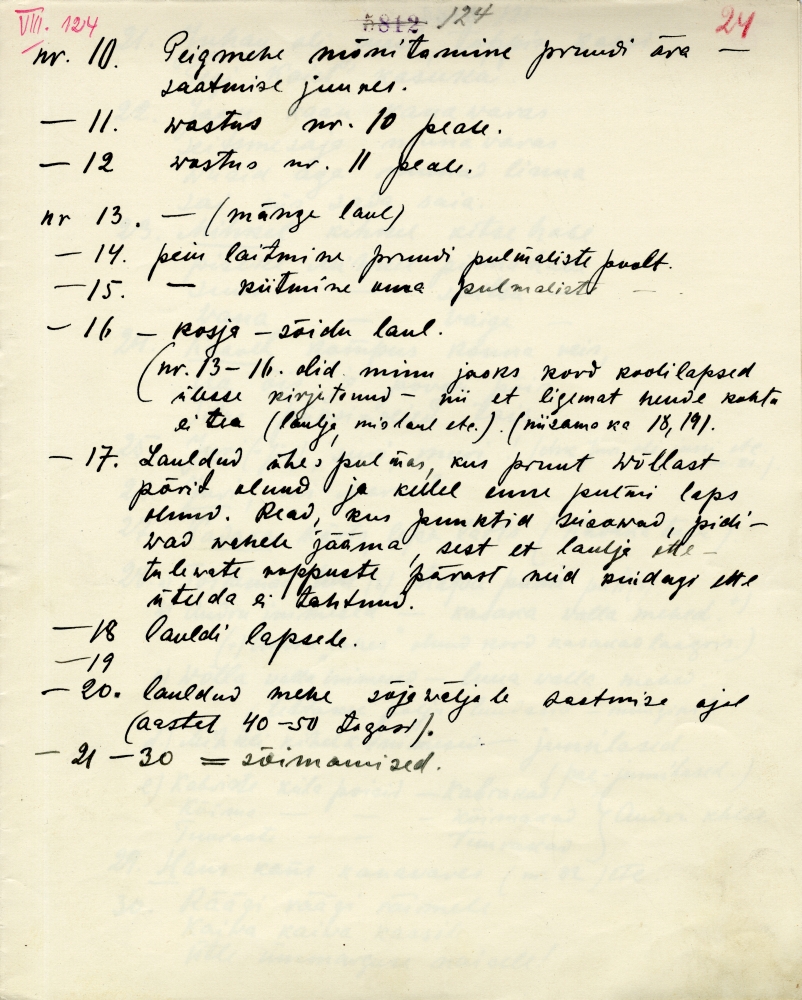 VIII. 124 5812 124 24
nr. 10. Peigmehe mõnitamine pruudi ära —
saatmise juures.
— 11. wastus nr. 10 peale.
— 12 wastus nr. 11 peale.
nr 13. — (mänge laul)
— 14. peiu laitmine pruudi pulmaliste poolt.
— 15. — kiitmine oma pulmaliste —
— 16 — kosja — sõidu laul.
(nr. 13 — 16. olid minu jaoks kord koolilapsed
ülesse kirjutanud — nii et ligemat nende kohta
ei tea (laulja, mis laul etc.). (niisama ka 18, 19).
— 17. Lauldud ühes pulmas, kus pruut wõllast
pärit olnud ja kellel enne pulmi laps
olnud. Read, kus punktid seisawad, pidi-
wad wahele jääma, sest et laulja ette-
tulewate roppuste pärast neid kuidagi ette
ütelda ei tahtnud.
— 18 lauldi lapsele.
— 19
— 20. lauldud mehe sõjawäljale saatmise ajal
(aastat 40 — 50 tagasi).
— 21 — 30 = sõimamised.